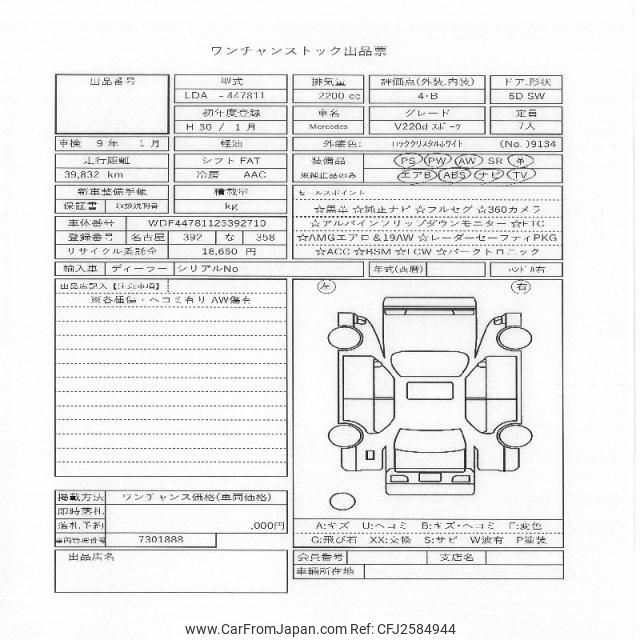 ワンチャンストック出品票
出品番号 型式 排気量 評価点(外装.内装) ドア.形状
LDA -447811 2200 cc 4・B 5D SW
初年度登録 車名 グレード 定員
H 30 / 1月 Mercedes V220d スポーツ 7人
車検 9 年 1 月 軽油 外装色: ロッククリスタルホワイト (No.)9134
走行距離 シフト FAT 装備品 PS PW AW SR 革
39,832 km 冷房 AAC ※純正品のみ エアB ABS ナビ TV
新車整備手帳 積載量 セールスポイント
保証書 取扱説明書 kg ☆黒革 ☆純正ナビ ☆フルセグ ☆360カメラ
車体番号 WDF44781123392710 ☆アルパインフリップダウンモニター ☆ETC
登録番号 名古屋 392 な 358 ☆AMGエアロ&19AW ☆レーダーセーフティPKG
リサイクル委託金 18,650 円 ☆ACC ☆BSM ☆LCW ☆パークトロニック
輸入車 ディーラー シリアルNo 年式(西暦) ハンドル 右
出品店記入【注意事項】 左 右
※各種傷・ヘコミ有り AW傷有
掲載方法 ワンチャンス価格(車両価格)
即時落札
落札予約 ,000円 A:キズ U:ヘコミ B:キズ・ヘコミ F:変色
車両管理番号 7301888 G:飛び石 XX:交換 S:サビ W波有 P塗装
出品店名 会員番号 支店名
車輌所在地
www.CarFromJapan.com Ref: CFJ2584944